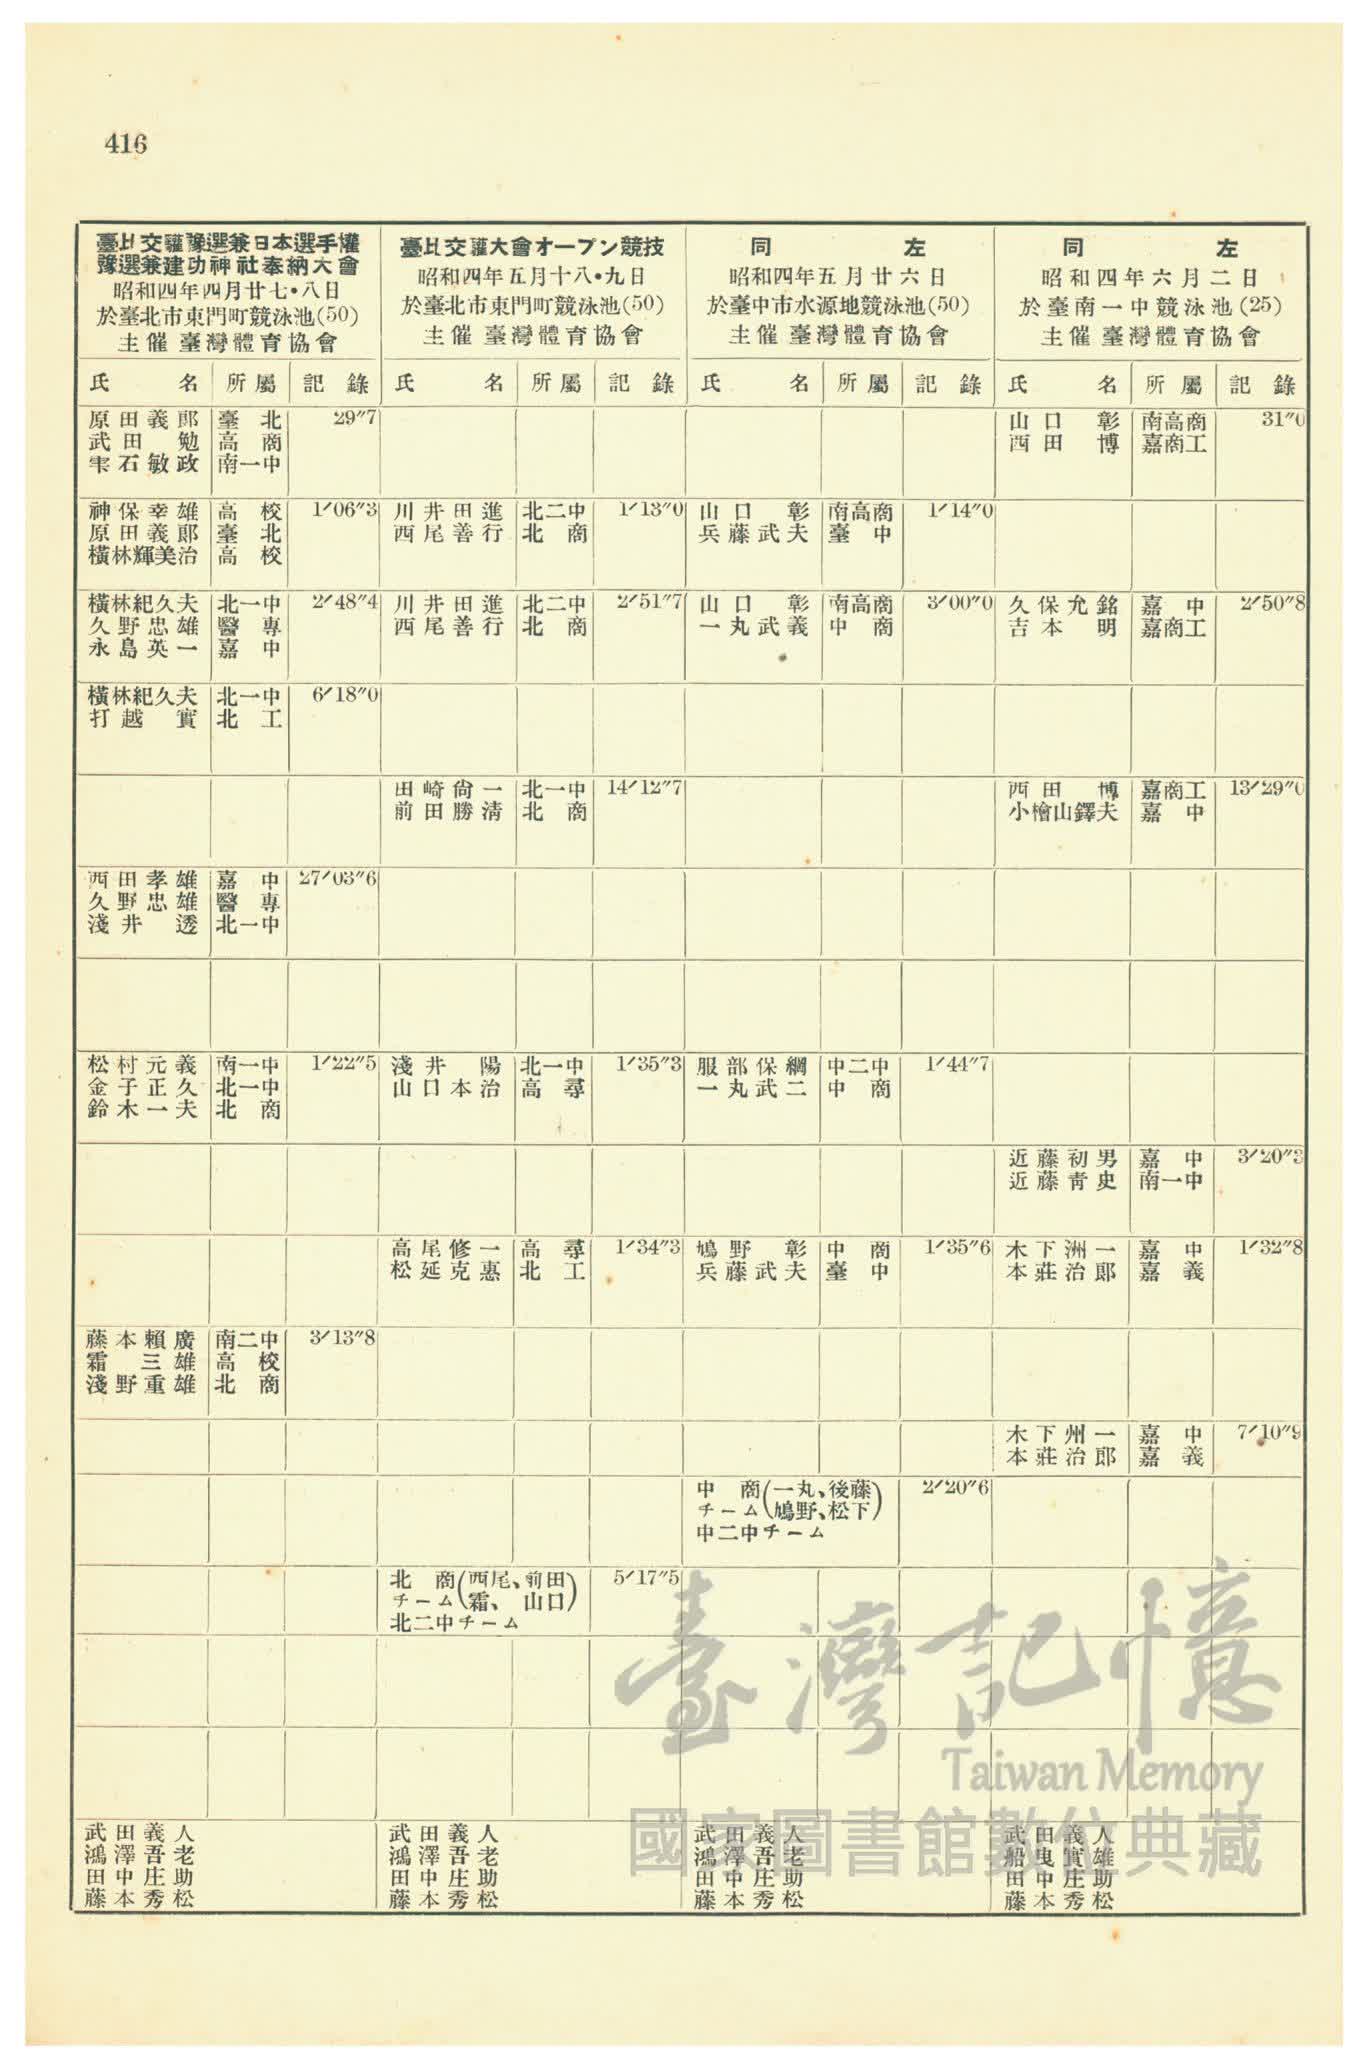 416
臺比交驩豫選兼日本選手權
豫選兼建功神社奉納大會
昭和四年四月廿七・八日
於臺北市東門町競泳池(50)
主催 臺灣體育協會
氏名 所屬 記錄
原田義郎 臺北 29″7
武田勉 高商
雫石敏政 南一中
神保幸雄 高校 1′06″3
原田義郎 臺北
橫林輝美治 高校
橫林紀久夫 北一中 2′48″4
久野忠雄 醫專
永島英一 嘉中
橫林紀久夫 北一中 6′18″0
打越實 北工
西田孝雄 嘉中 27′03″6
久野忠雄 醫專
淺井透 北一中
松村元義 南一中 1′22″5
金子正久 北一中
鈴木一夫 北商
藤本賴廣 南二中 3′13″8
霜三雄 高校
淺野重雄 北商
武田義人
鴻澤吾老
田中庄助
藤本秀松
臺比交驩大會オープン競技
昭和四年五月十八・九日
於臺北市東門町競泳池(50)
主催 臺灣體育協會
氏名 所屬 記錄
川井田進 北二中 1′13″0
西尾善行 北商
川井田進 北二中 2′51″7
西尾善行 北商
田崎尙一 北一中 14′12″7
前田勝淸 北商
淺井陽 北一中 1′35″3
山口本治 高尋
高尾修一 高尋 1′34″3
松延克惠 北工
北商(西尾、前田 5′17″5
チーム(霜、山口)
北二中チーム
武田義人
鴻澤吾老
田中庄助
藤本秀松
同左
昭和四年五月廿六日
於臺中市水源地競泳池(50)
主催 臺灣體育協會
氏名 所屬 記錄
山口彰 南高商 1′14″0
兵藤武夫 臺中
山口彰 南高商 3′00″0
一丸武義 中商
服部保綱 中二中 1′44″7
一丸武二 中商
鳩野彰 中商 1′35″6
兵藤武夫 臺中
中商(一丸、後藤 2′20″6
チーム(鳩野、松下)
中二中チーム
武田義人
鴻澤吾老
田中庄助
藤本秀松
同左
昭和四年六月二日
於臺南一中競泳池(25)
主催 臺灣體育協會
氏名 所屬 記錄
山口彰 南高商 31″0
西田博 嘉商工
久保允銘 嘉中 2′50″8
吉本明 嘉商工
西田博 嘉商工 13′29″0
小檜山鐸夫 嘉中
近藤初男 嘉中 3′20″3
近藤靑史 南一中
木下洲一 嘉中 1′32″8
本莊治郎 嘉義
木下州一 嘉中 7′10″9
本莊治郎 嘉義
武田義人
船曳實雄
田中庄助
藤本秀松
臺灣記憶
Taiwan Memory
國家圖書館數位典藏